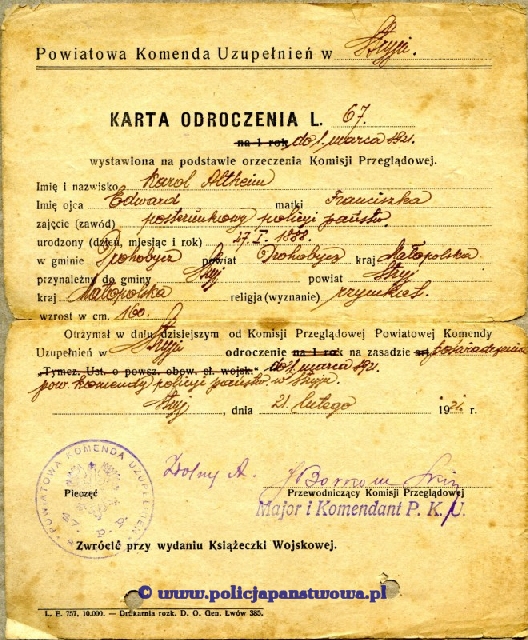 Powiatowa Komenda Uzupełnień w Stryju.
KARTA ODROCZENIA L. 67.
na 1 rok do 1. marca 1921.
wystawiona na podstawie orzeczenia Komisji Przeglądowej.
Imię i nazwisko Karol Altheim
Imię ojca Edward matki Franciszka
zajęcie (zawód) posterunkowy policyi państw.
urodzony (dzień, miesiąc i rok) 27. I. 1888.
w gminie Drohobycz powiat Drohobycz kraj Małopolska
przynależny do gminy Stryj powiat Stryj
kraj Małopolska religja (wyznanie) rzymkat.
wzrost w cm. 160.
Otrzymał w dniu dzisiejszym od Komisji Przeglądowej Powiatowej Komendy
Uzupełnień w Stryju odroczenie na 1 rok na zasadzie poświadczenia
„Tymcz. Ust. o powsz. obow. sł. wojsk." do 1. marca 1921.
pow. komendy policyi państw. w Stryju.
Stryj, dnia 21. lutego 1921 r.
POWIATOWA KOMENDA UZUPEŁNIEŃ
Pieczęć
Przewodniczący Komisji Przeglądowej
Major i Komendant P. K. U.
Zwrócić przy wydaniu Książeczki Wojskowej.
© www.policjapanstwowa.pl
L. F. 757. 10.000. — Drukarnia rozk. D. O. Gen. Lwów 385.